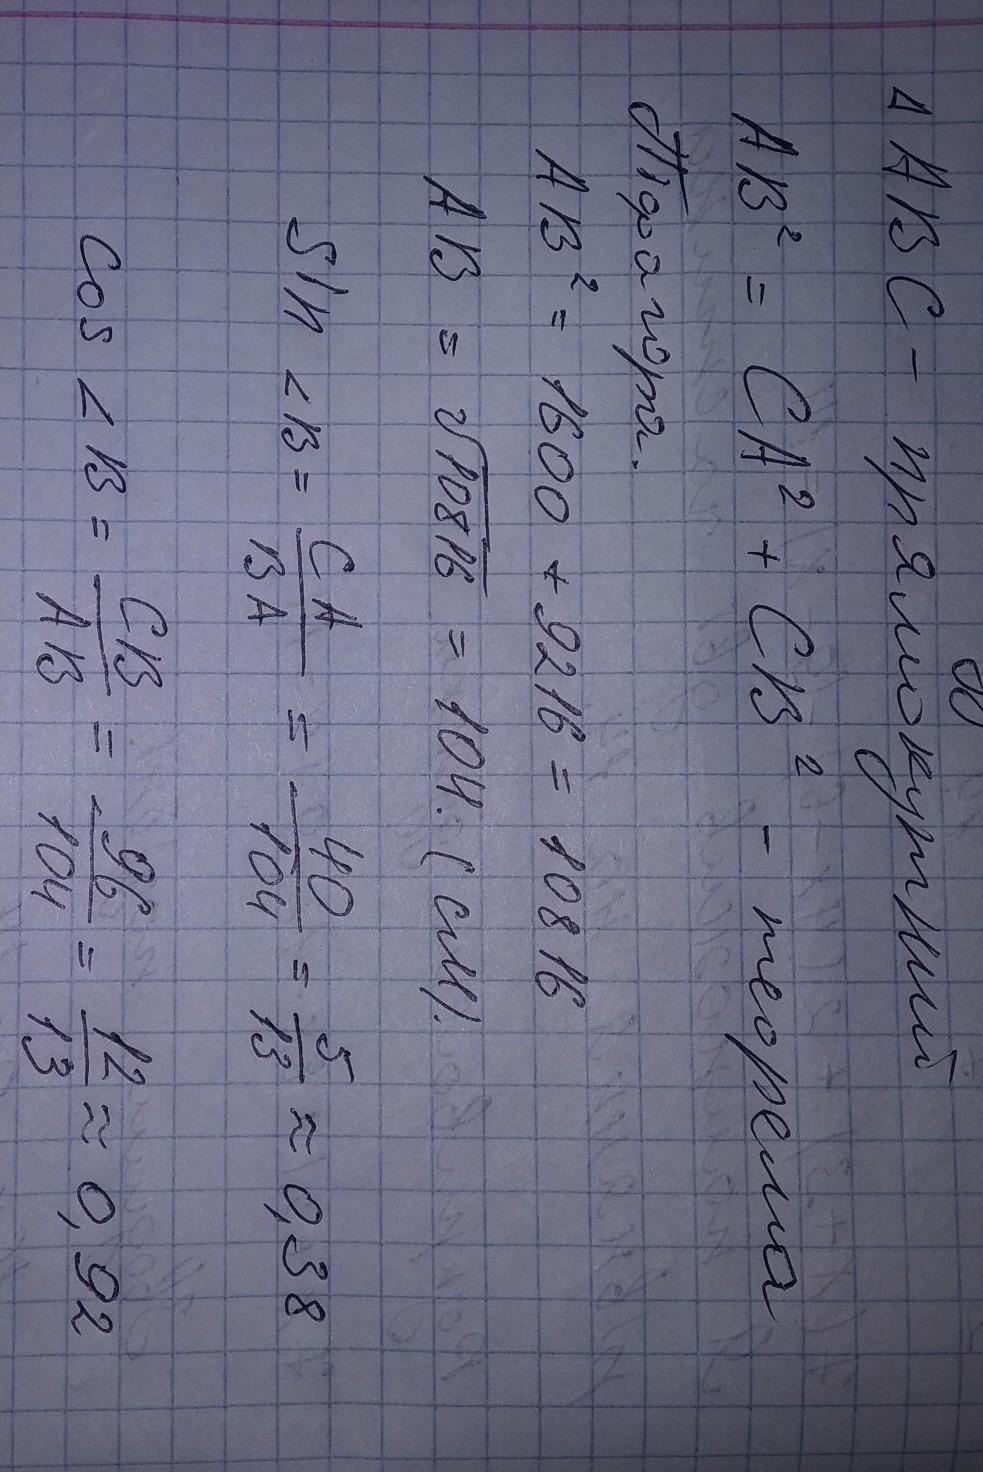 Δ ABC - прямокутний
AB² = CA² + CB² - теорема
Піфагора.
AB² = 1600 + 9216 = 10816
AB = √10816 = 104. (см).
Sin ∠B = CA/BA = 40/104 = 5/13 ≈ 0,38
Cos ∠B = CB/AB = 96/104 = 12/13 ≈ 0,92